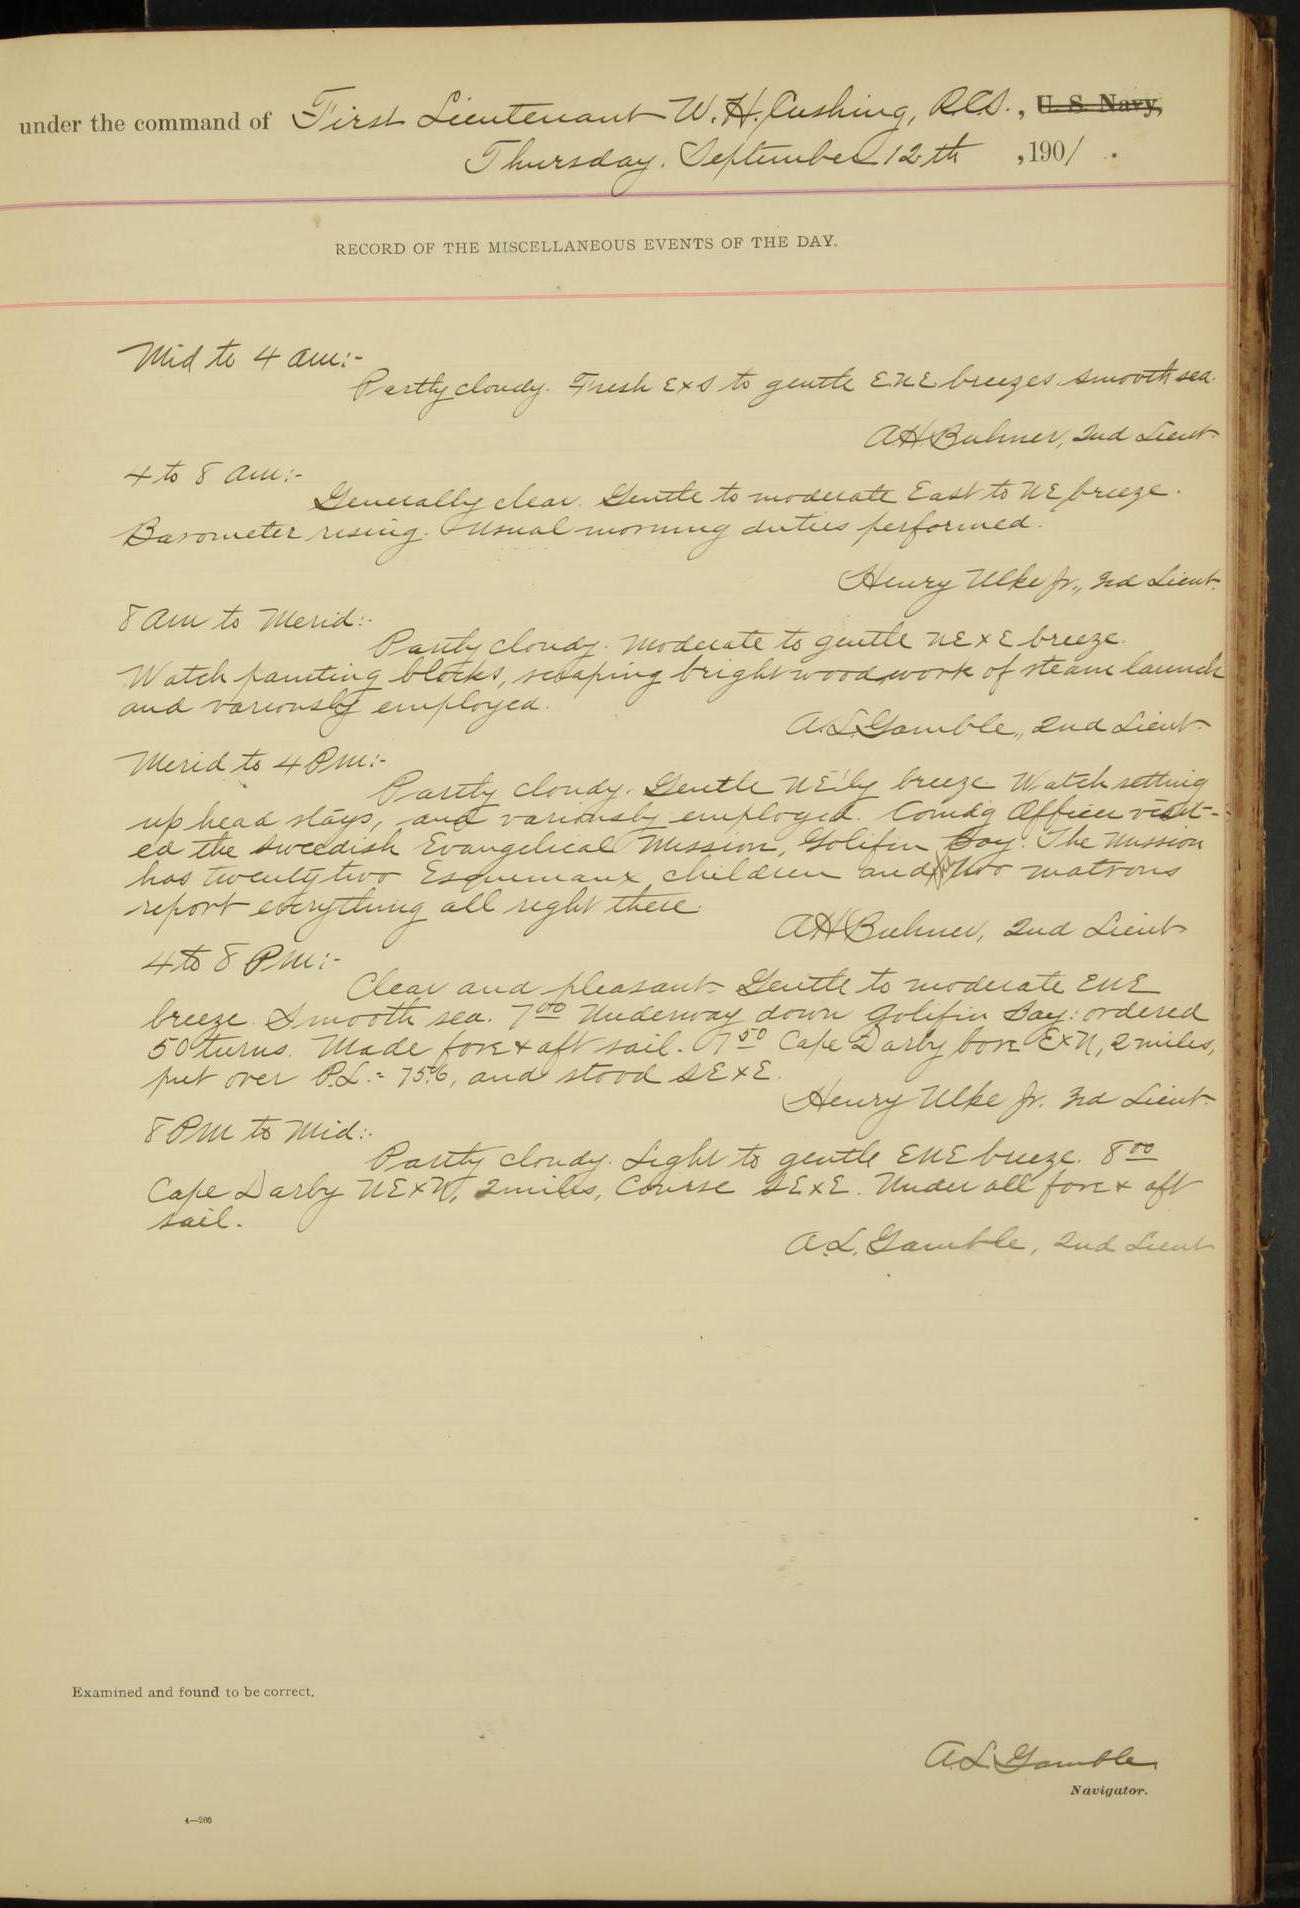 under the command of First Lieutenant W. H. Cushing, R.C.S., U. S. Navy,
Thursday. September 12th, 1901.
RECORD OF THE MISCELLANEOUS EVENTS OF THE DAY.
Mid to 4 am:-
Partly cloudy. Fresh ExS to gentle ENE breezes. Smooth sea.
AH Buhner, 2nd Lieut.
4 to 8 am:-
Generally clear. Gentle to moderate East to NE breeze.
Barometer rising. Usual morning duties performed.
Henry Ulke Jr., 3rd Lieut.
8 am to Merid:-
Partly cloudy. Moderate to gentle NExE breeze.
Watch painting blocks, scraping bright wood work of steam launch
and variously employed.
A.L. Gamble, 2nd Lieut.
Merid to 4 PM:-
Partly cloudy. Gentle NE'ly breeze. Watch setting
up head stays, and variously employed. Comdg Officer visit-
ed the Swedish Evangelical Mission, Golifin Bay. The Mission
has twenty two Esquimaux children and two matrons
report everything all right there.
AH Buhner, 2nd Lieut
4 to 8 PM:-
Clear and pleasant. Gentle to moderate ENE
breeze. Smooth sea. 7 00 Underway down Golifin Bay: ordered
50 turns. Made fore & aft sail. 7 50 Cape Darby bore ExN, 2 miles,
put over P.L. = 75.6, and stood SExE.
Henry Ulke Jr. 3rd Lieut.
8 PM to Mid:-
Partly cloudy. Light to gentle ENE breeze. 8 00
Cape Darby NExN, 2 miles, Course SExE. Under all fore & aft
sail.
A.L. Gamble, 2nd Lieut
Examined and found to be correct.
A.L. Gamble
Navigator.
4—266